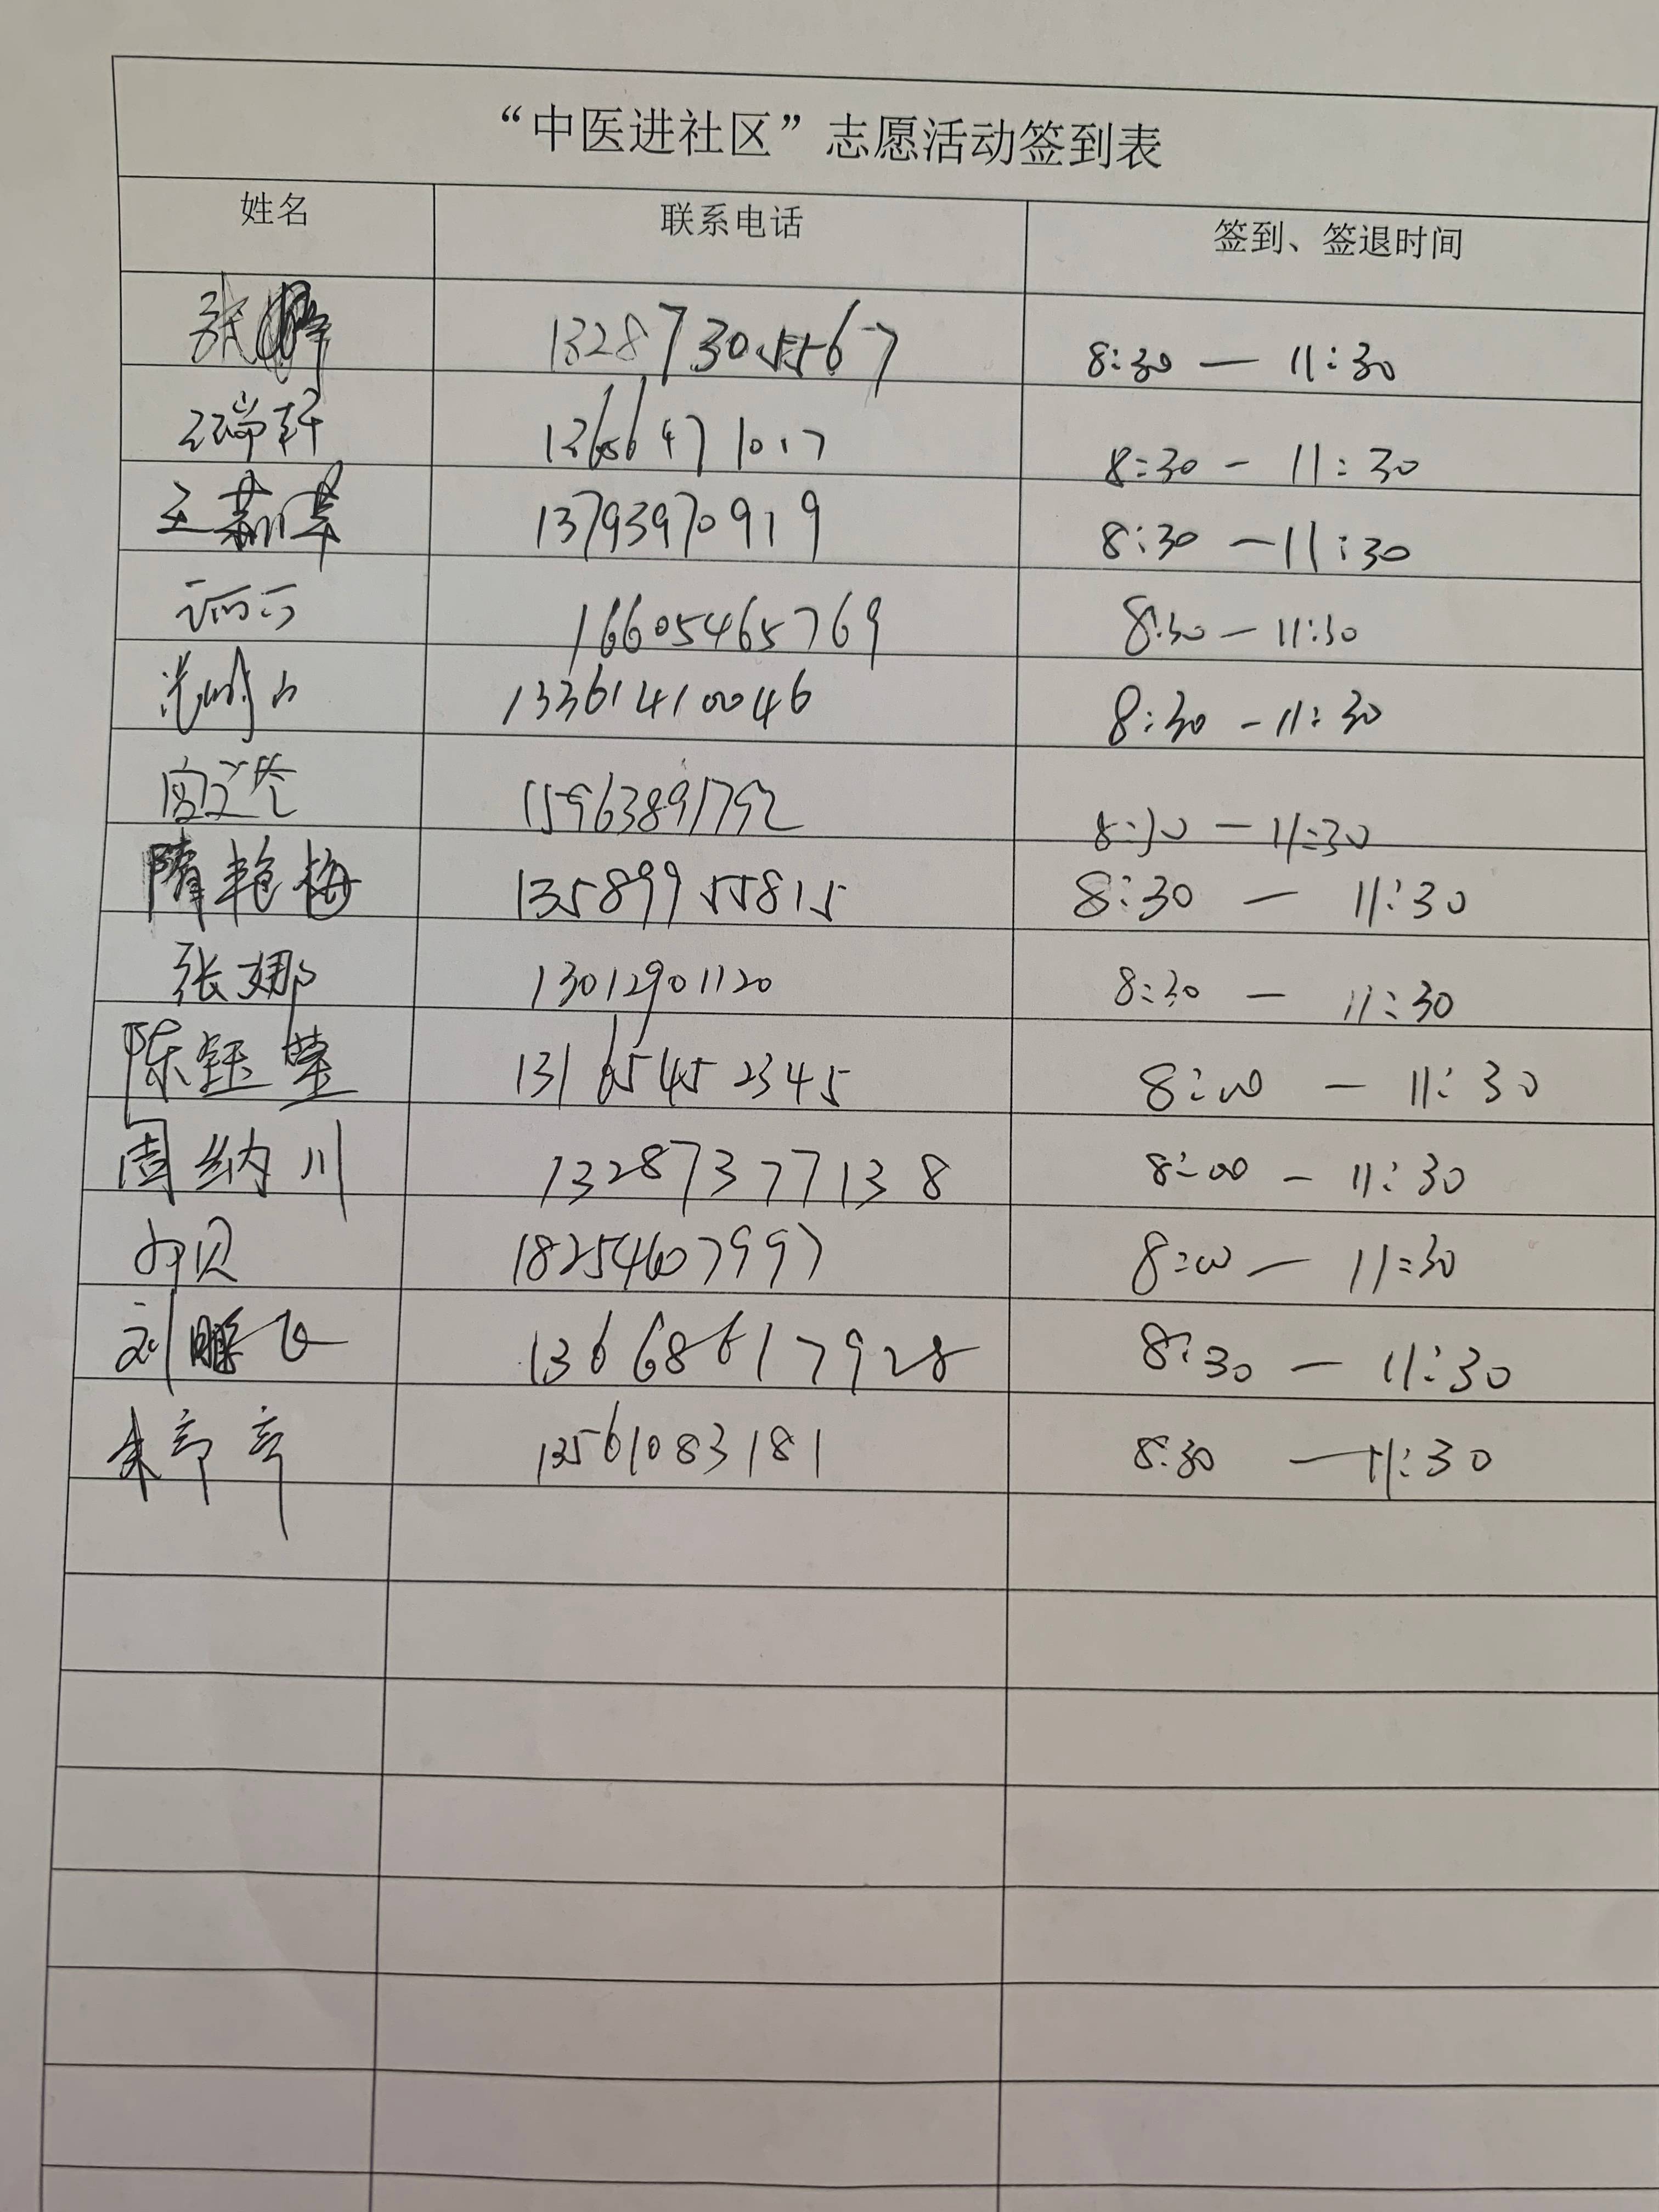 “中医进社区”志愿活动签到表
姓名 联系电话 签到、签退时间
张 13287305567 8:30 — 11:30
王瑞轩 13656471017 8:30 - 11:30
王 13793970919 8:30 — 11:30
16605465769 8:30 — 11:30
13361410046 8:30 - 11:30
15963891792 8:30 — 11:30
隋艳梅 13589955815 8:30 — 11:30
张娜 13012901120 8:30 — 11:30
陈钰莹 13165452345 8:00 — 11:30
周纳川 13287377138 8:00 - 11:30
18254607997 8:00 — 11:30
刘鹏飞 13668617928 8:30 — 11:30
13561083181 8:30 — 11:30